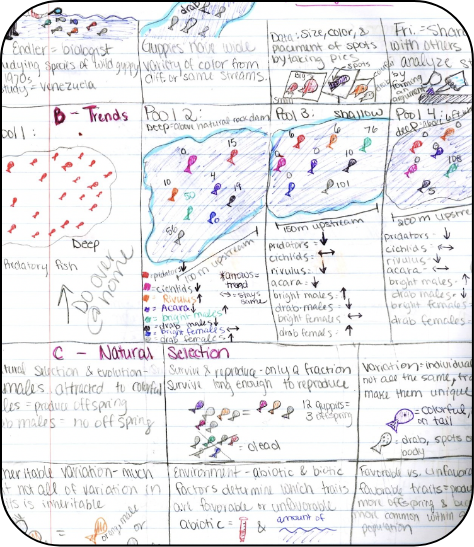 Endler = biologist
studying species of wild guppy
1970s
study = Venezuela
Guppies have wide
variety of color from
diff. or same streams.
Data: Size, color, &
placement of spots
by taking pics
spots
Fri. = Share
with others
analyze
by
forming
an
argument
B - Trends
Pool 1:
Deep
Predatory Fish
Do over
@ home
Pool 2:
Deep-above natural rock dam
0
15
10
4
50
19
0
56
100m upstream
predators ↓
cichlids ↓
Rivulus ↑
Acara ↓
bright males ↑
drab males ↓
bright females ↔
drab females ↑
*arrows=
trend
↔ = stays
same
Pool 3: shallow
6
6
76
0
10
0
101
150m upstream
predators = ↓
cichlids = ↔
rivulus = ↓
acara = ↓
bright males = ↑
drab males = ↓
bright females ↔
drab females = ↑
Pool 4:
deep-above
0
0
108
5
200m upstream
predators = ↓
cichlids ↔
rivulus = ↓
acara = ↔
bright males = ↑
drab males = ↓
bright females =
drab females
C - Natural Selection
Natural Selection & evolution=
males attracted to colorful
males = produce offspring
drab males = no offspring
Survive & reproduce-only a fraction
survive long enough to reproduce
12 guppies =
3 offspring
= dead
Variation = individual
not all the same, tra
make them unique
= colorful,
on tail
= drab, spots on
body
Inheritable variation- much
but not all of variation in
is inheritable
=
orig. male
or
Environment - abiotic & biotic
factors determine which traits
are favorable or unfavorable
abiotic =
&
amount of
Favorable vs. unfavora
favorable traits = produ
more offspring &
more common within
population